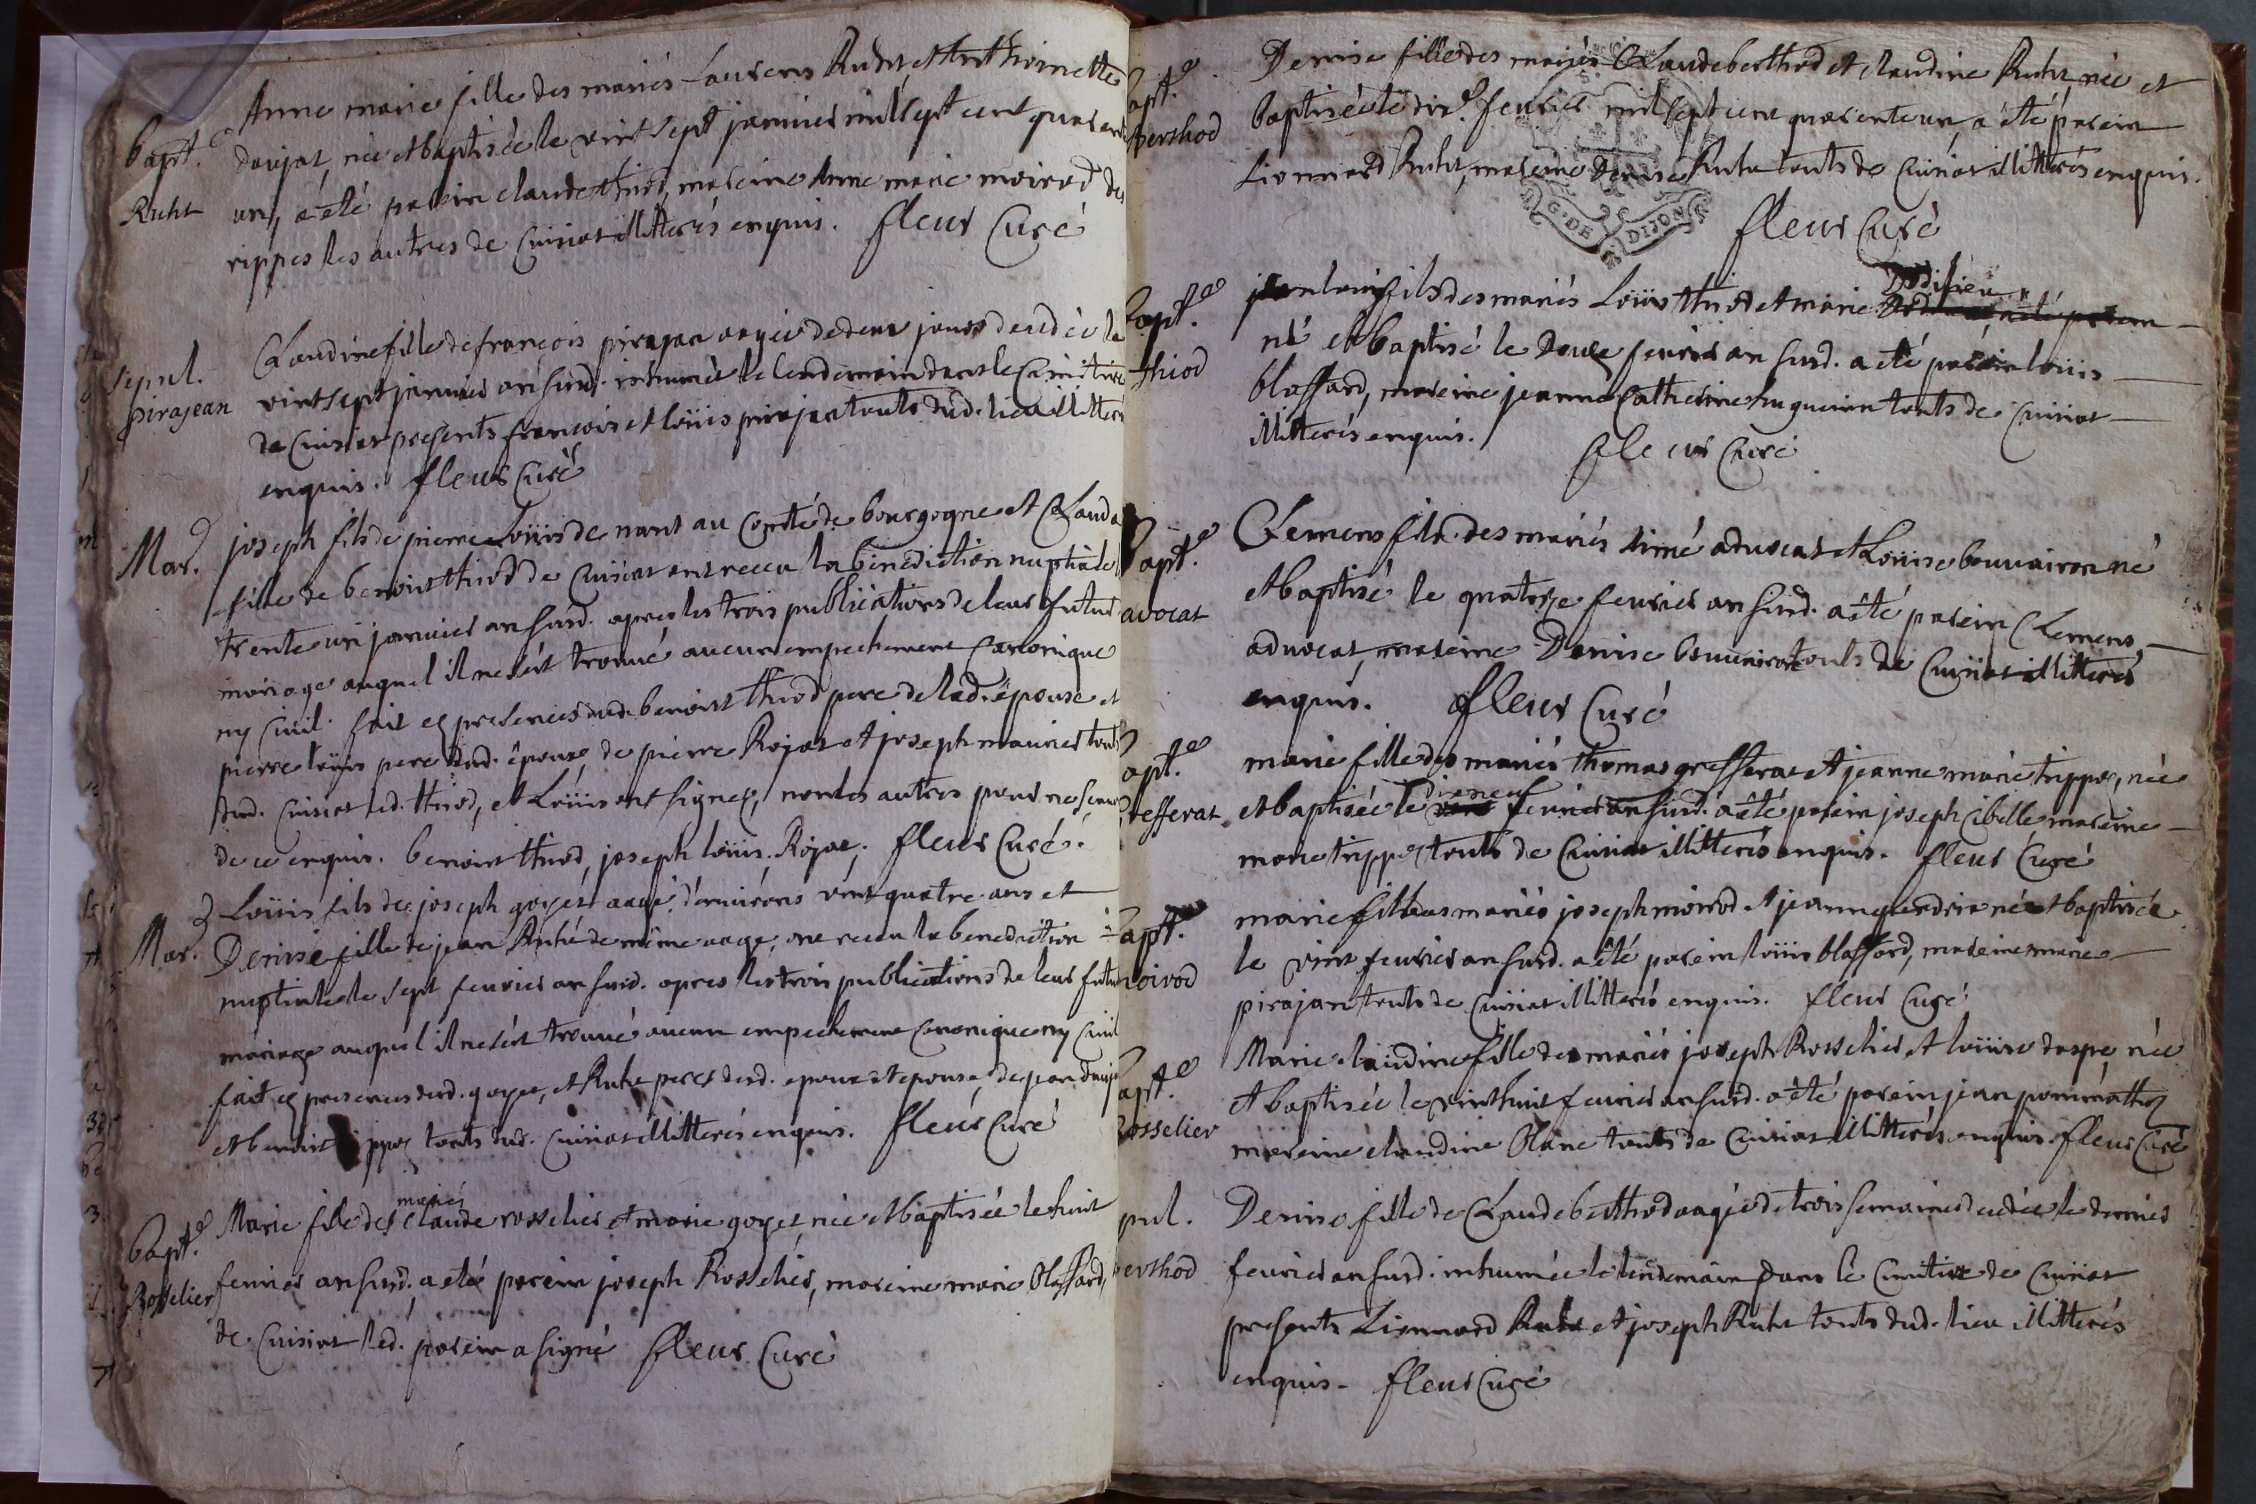 Anne marie fille des mariés Laurens Ruht et Anthoinette
bapt.e
Ruht
daujat, née et baptisée le vint sept janvier mil sept cent quarante
un, a été parein claude thiod, mareine Anne marie moirod des
rippes les autres de Cuisiat illitterés enquis. fleur Curé
sepul.
pirajean
Claudine fille de françois pirajan aagée de deux jours decedée le
vint sept janvier an susd. inhumée le lendemain dans le Cimitire
de Cuisiat presents françois et loüis pirajan touts dud. lieu illitterés
enquis. fleur Curé
Mar.
joseph fils de pierre Loüis de nant au Comté de bourgogne et Clauda
fille de benoist thiod de Cuisiat ont receu la benediction nuptiale le
trente un janvier an susd. apres les trois publications de leur futur
mariage auquel il ne s'est trouvé aucun empechement Canonique
ny Civil. fait es presences dud. benoist thiod pere de lad. épouse et
pierre loüis pere dud. époux, de pierre Rojat et joseph maurier touts
dud. Cuisiat led. thiod, et Loüis ont signez, non les autres pour ne scavoir
de ce enquis. benoist thiod, joseph loüis. Rojat. fleur Curé.
Mar.
Loüis fils de joseph goyet aagé d'environs vint quatre ans et
Denise fille de jean Ruht de même aage, ont receu la benediction
nuptiale le sept fevrier an susd. apres les trois publications de leur futur
mariage auquel il ne s'est trouvé aucun empechement Canonique ny Civil
fait es presences desd. goyet, et Ruht peres desd. epoux et epouse, de jean daujat
et benoist ippos touts dud. Cuisiat illitterés enquis. fleur Curé
bapt.e
Rosselier
Marie fille des mariés Claude rosselier et marie goyet, née et baptisée le huit
fevrier an susd. a été parein joseph Rosselier, mareine marie blassard,
de Cuisiat led. parein a signé fleur Curé
bapt.e
berthod
Denise fille des mariés Claude berthod et claudine Ruht, née et
baptisée le dix.e fevrier mil sept cent quarente un, a été parein
Lionnard Ruht, mareine Denise Ruht touts de Cuisiat illitterés enquis.
fleur Curé
G. DE DIJON
bapt.e
thiod
jean louis fils des mariés Loüis thiod et marie Dodilieu
né et baptisé le douze fevrier an susd. a été parein loüis
blassard, mareine jeanne Catherine huguenin touts de Cuisiat
illitterés enquis. fleur Curé
bapt.e
avocat
Clemens fils des mariés aimé advocat et Loüise bouvairon né
et baptisé le quatorze fevrier an susd. a été parein Clemens
advocat, mareine Denise bouvairon touts de Cuisiat illitterés
enquis. fleur Curé
bapt.e
greffera
marie fille des mariés thomas grefferat et jeanne marie trippoz, née
et baptisée le dixneuf fevrier an susd. a été parein joseph Cibelle mareine
marie trippoz touts de Cuisiat illitterés enquis. fleur Curé
bapt.e
moirod
marie fille des mariés joseph moirod et jeanne née et baptisée
le vint fevrier an susd. a été parein loüis blassard, mareine marie
pirajan touts de Cuisiat illitterés enquis. fleur Curé
bapt.e
Rosselier
Marie claudine fille des mariés joseph Rosselier et loüise daspe, née
et baptisée le vint huit fevrier an susd. a été parein jean pommathoz
mareine claudine blanc touts de Cuisiat illitterés enquis. fleur Curé
pul.
berthod
Denise fille de Claude berthod aagée de trois semaines decedée le dernier
fevrier an susd. inhumée le lendemain dans le Cimitire de Cuisiat
presents Lionnard Ruht et joseph Ruht touts dud. lieu illitterés
enquis. fleur Curé